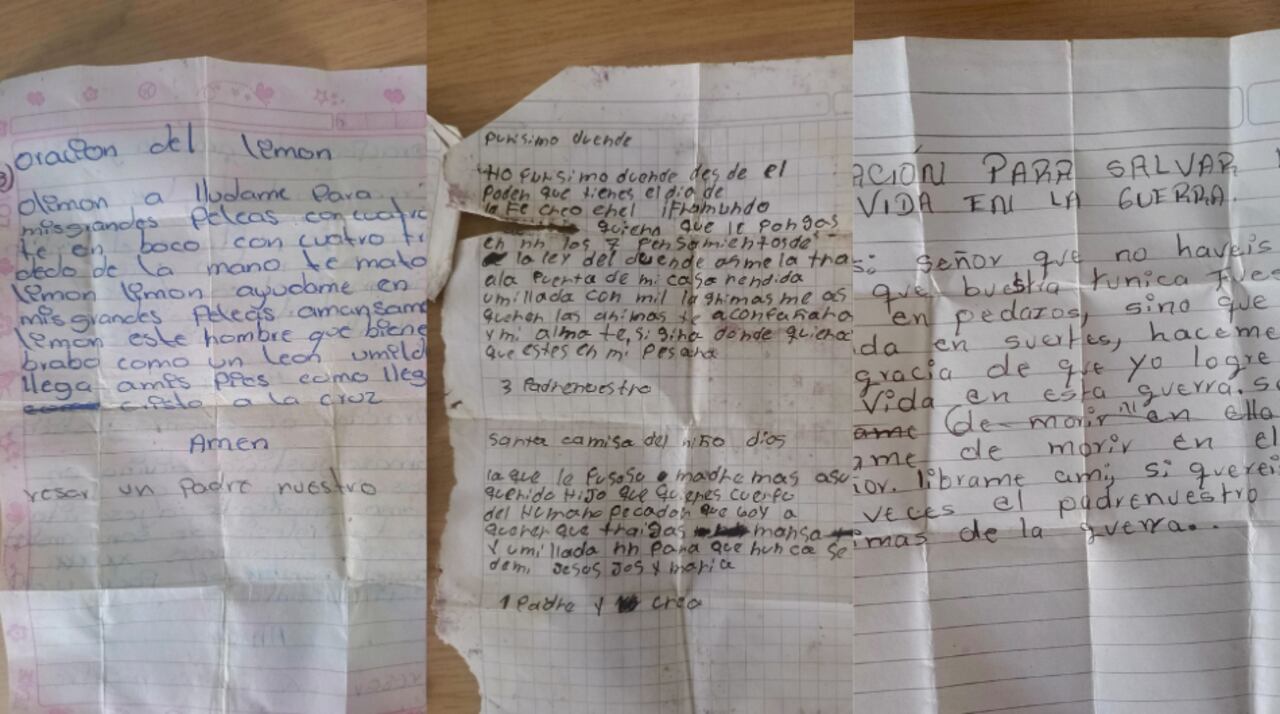 oracion del lemon
olemon a lludame para
misgrandes Peleas concuatro
te en boco con cuatro tr
dedo de la mano te mato
lemon lemon ayudame en
misgrandes Peleas amansam
lemon este hombre que biene
brabo como un leon umild
llega amis Pies como lleg
cristo a la cruz
Amen
resar un Padre nuestro
Purisimo duende
HO Purisimo duende desde el
Poder que tienes el dia de
la Fe creo enel
quiero que le Pongas
en nn los 7 Pensamientos de
la ley del duende asmela tra
ala Puerta de mi casa rendida
umillada con mil lagrimas me as
querer las animas te aconpañara
y mi alma te sigira donde quiera
que estes en mi Pesara
3 Padrenuestro
Santa camisa del niño dios
la que le Pusoso madre mas
querido Hijo que quieres cuerpo
del Humano Pecador que boy a
querer que traigas mansa
y umillada nn Para que nunca se
de mi Jesos Jos y maria
1 Padre y creo
ACIÓN PARA SALVAR
VIDA EN LA GUERRA.
señor que no haveis
que buestra tunica fues
en pedazos, sino que
da en suertes, haceme
gracia de que yo logre
vida en esta guerra. s
ame (de morir en ella
ame de morir en el
ior. librame ami, si querei
veces el padrenuestro
imas de la guerra..